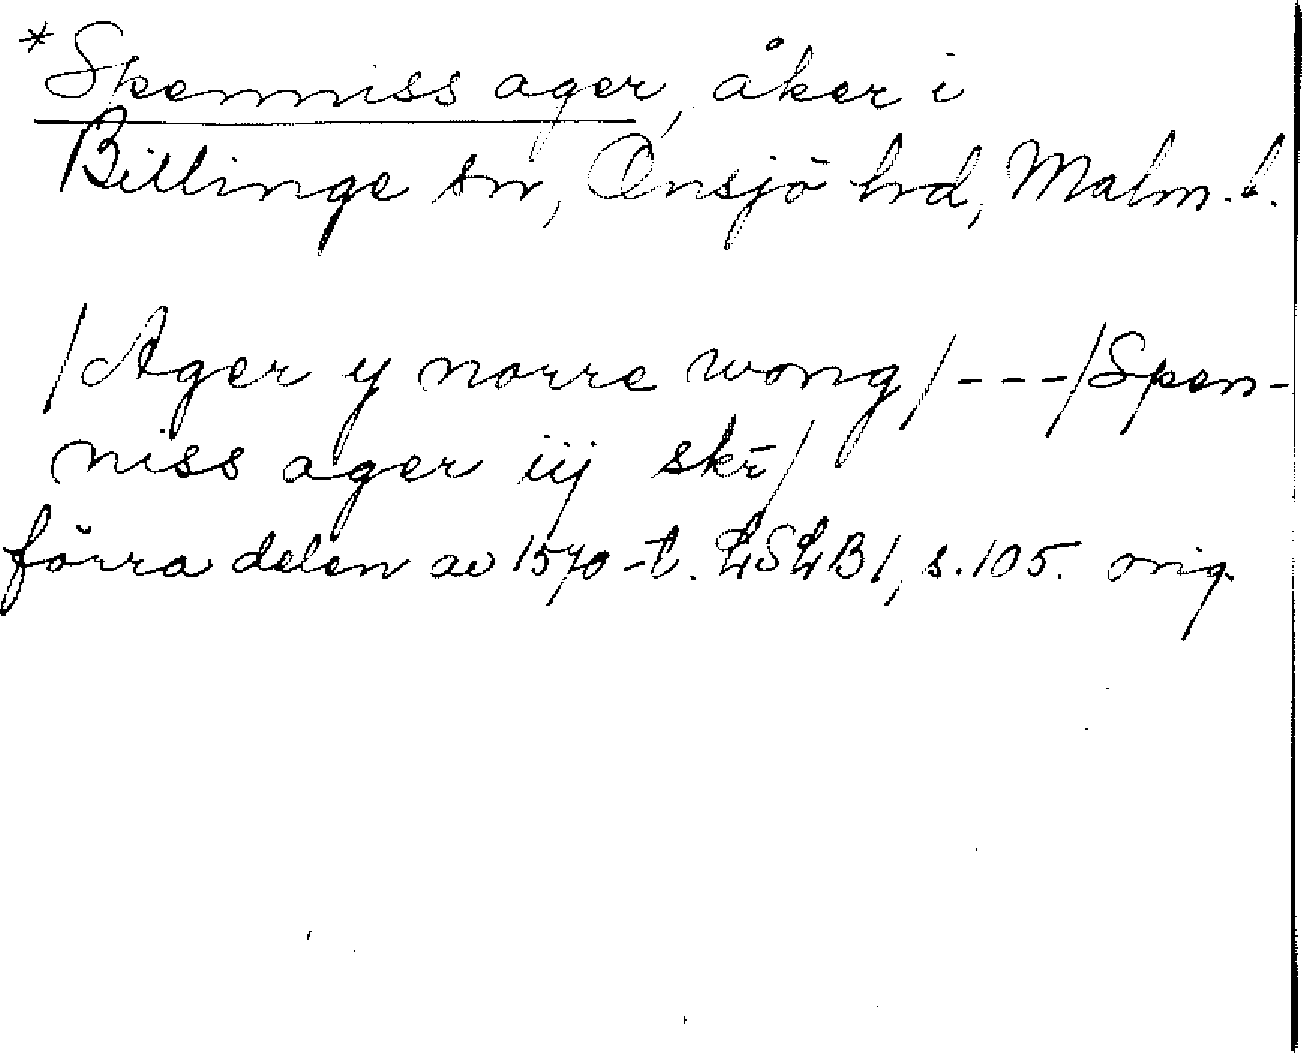 *Spenniss ager, åker i
Billinge sn, Onsjö hd, Malm. l.
/Ager y norre wong/ - - - /Spen-
niss ager iij skr̄/
förra delen av 1570-t. LSLB1, s. 105. orig.